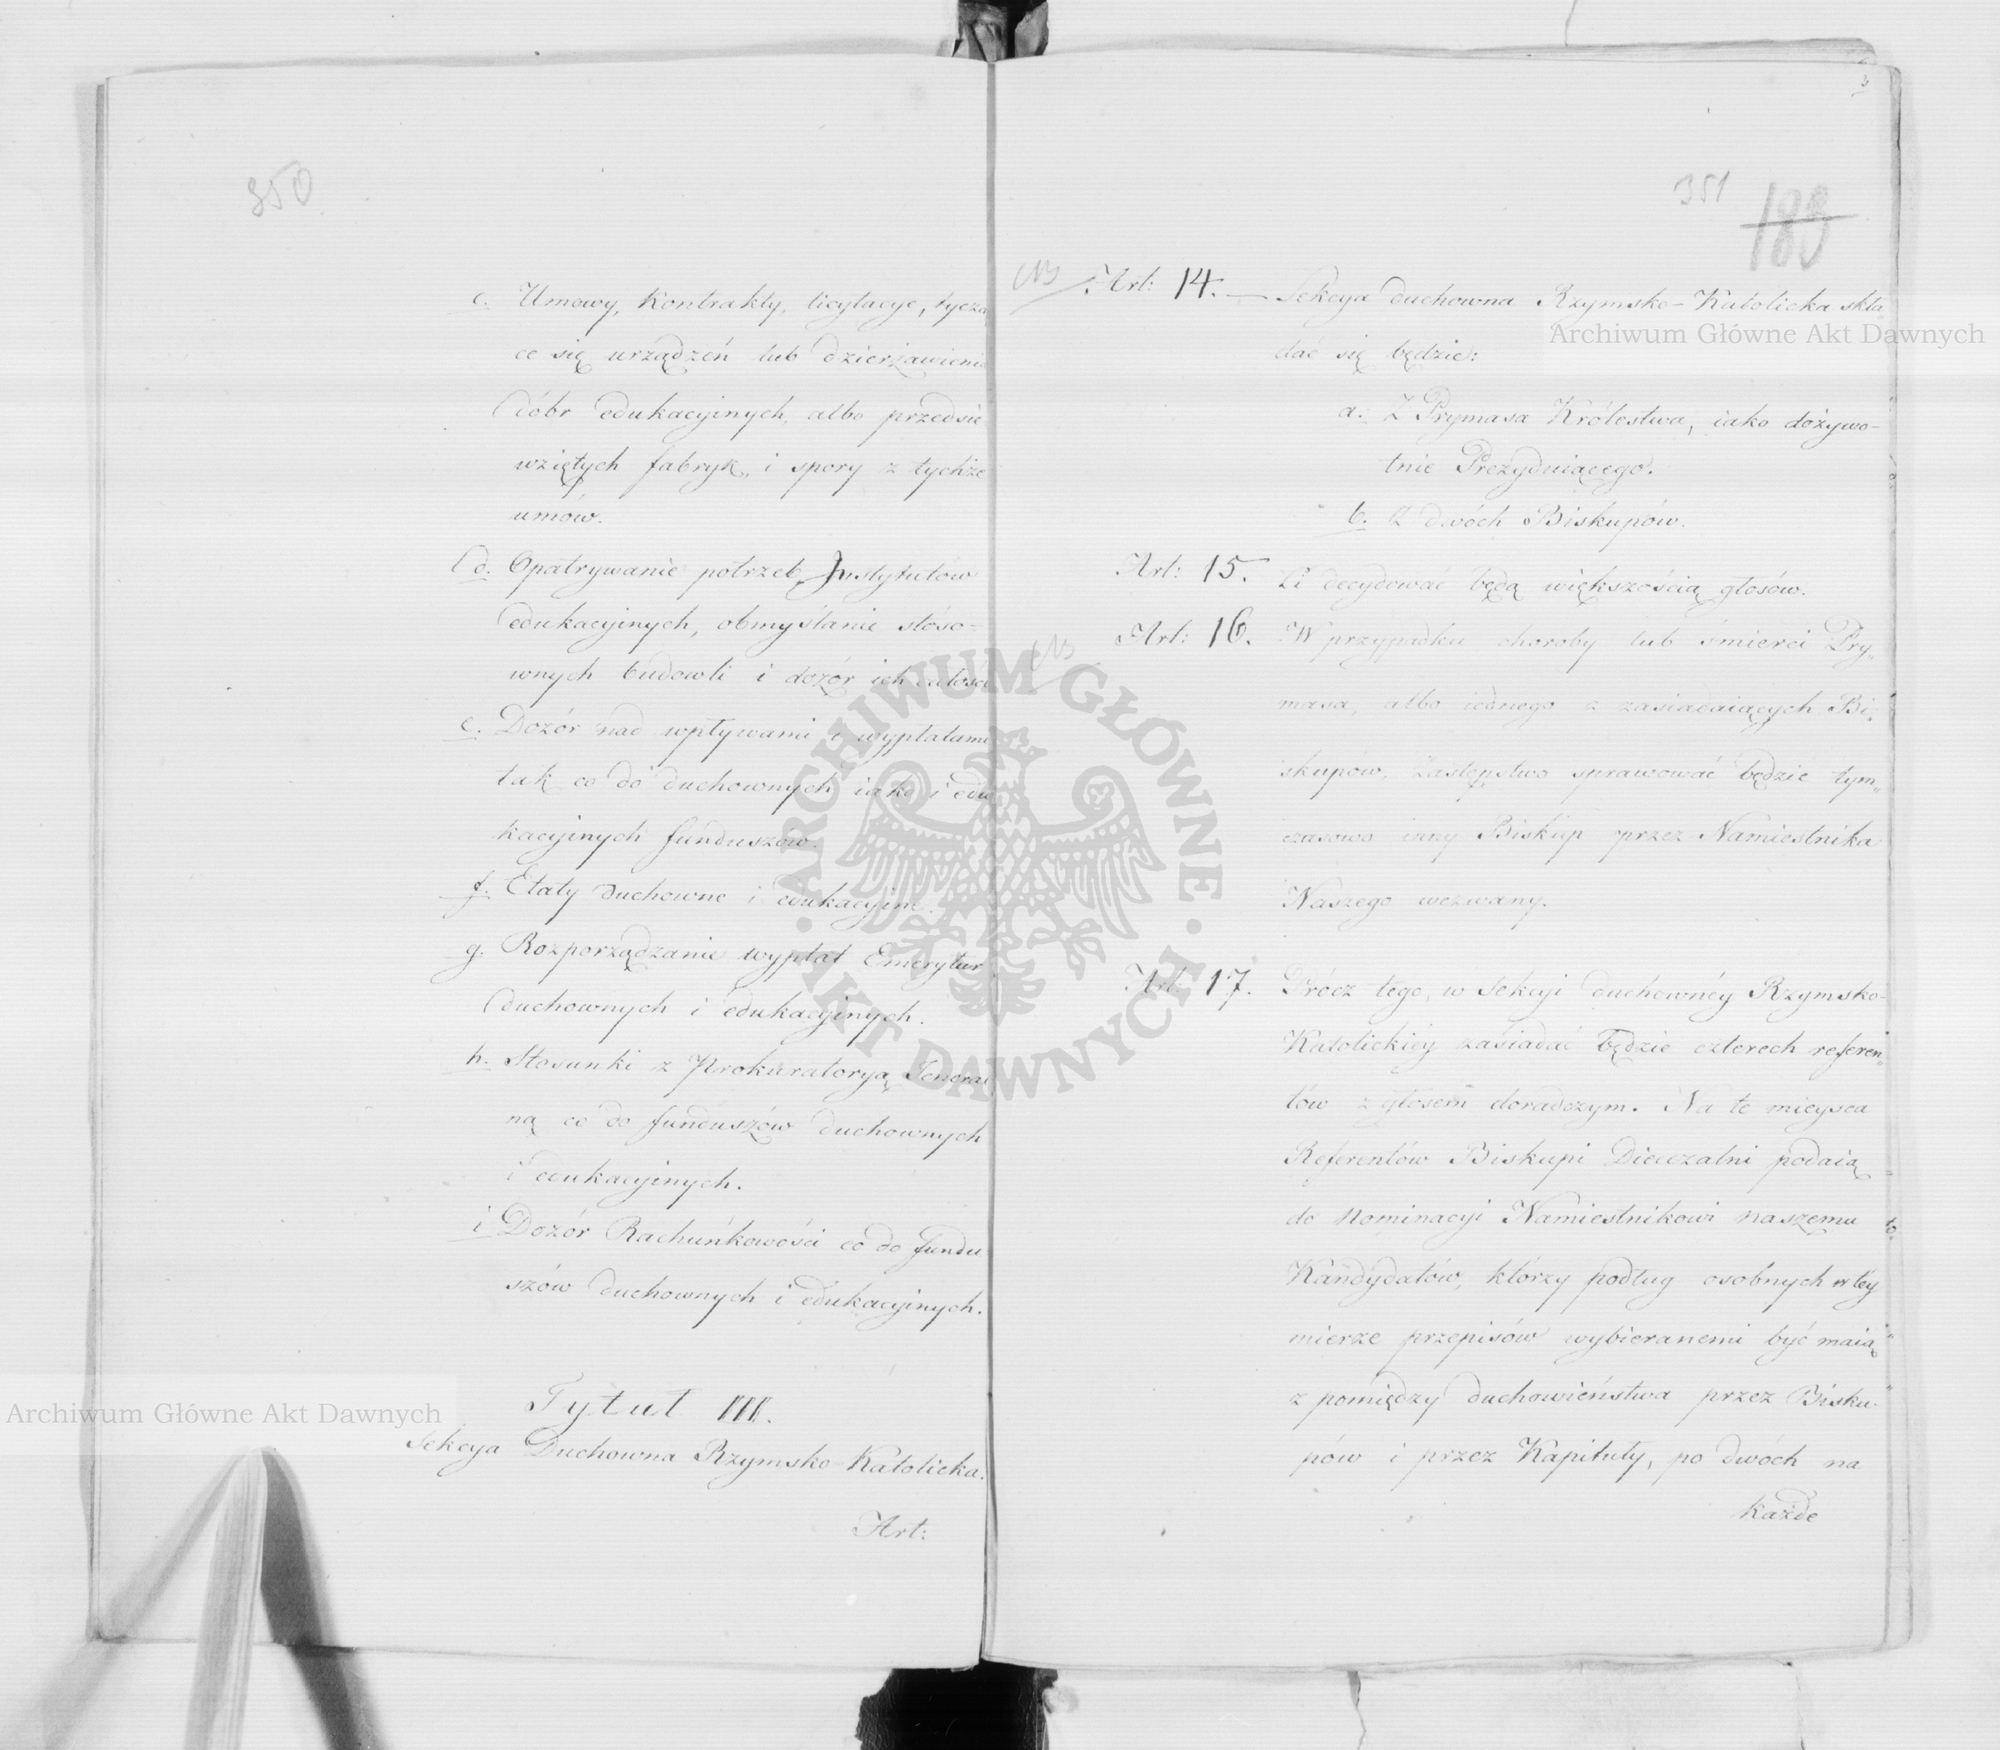 350
c. Umowy, Kontrakty, licytacye, tyczą
ce się urządzeń lub dzierżawienia
dóbr edukacyinych, albo przedsię
wziętych fabryk, i spory z tychże
umów.
d. Opatrywanie potrzeb Instytutów
edukacyinych, obmyślanie stóso=
wnych budowli i dozór ich całości
e. Dozór nad wpływami i wypłatami
tak co do duchownych iako i edu
kacyinych funduszów.
f. Etaty duchowne i edukacyine.
g. Rozporządzanie wypłat Emerytur
duchownych i edukacyinych.
h. Stosunki z Prokuratoryą Jeneral
ną co do funduszów duchownych
i edukacyinych.
i Dozór Rachunkowości co do fundu
szów duchownych i edukacyinych.
Tytuł III.
Sekcya Duchowna Rzymsko-Katolicka.
Art:
3
351
183
Art: 14. — Sekcya duchowna Rzymsko-Katolicka skła
dać się będzie:
a. Z Prymasa Królestwa, iako dożywo-
tnie Prezyduiącego.
b. Z dwóch Biskupów.
Art: 15. Ci decydować będą większością głosów.
Art: 16. W przypadku choroby lub śmierci Pry„
masa, albo iednego z zasiadaiących Bi„
skupów, zastępstwo sprawować będzie tym„
czasowo inny Biskup przez Namiestnika
Naszego wezwany.
Art: 17. Prócz tego, w Sekcyi duchownéy Rzymsko-
Katolickiéy zasiadać będzie czterech referen„
tów z głosem doradczym. Na te mieysca
Referentów Biskupi Diecezalni podaią
do Nominacyi Namiestnikowi naszemu
Kandydatów, którzy podług osobnych w téy
mierze przepisów wybieranemi być maią
z pomiędzy duchowieństwa przez Bisku-
pów i przez Kapituły, po dwóch na
każde
Archiwum Główne Akt Dawnych
Archiwum Główne Akt Dawnych
ARCHIWUM GŁÓWNE · AKT DAWNYCH ·